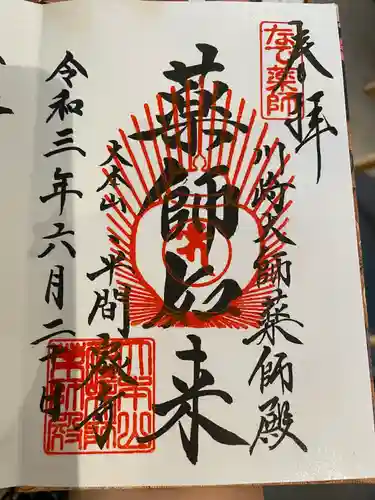 奉拝
川崎大師薬師殿
薬師如来
大本山
平間寺
令和三年六月二十日